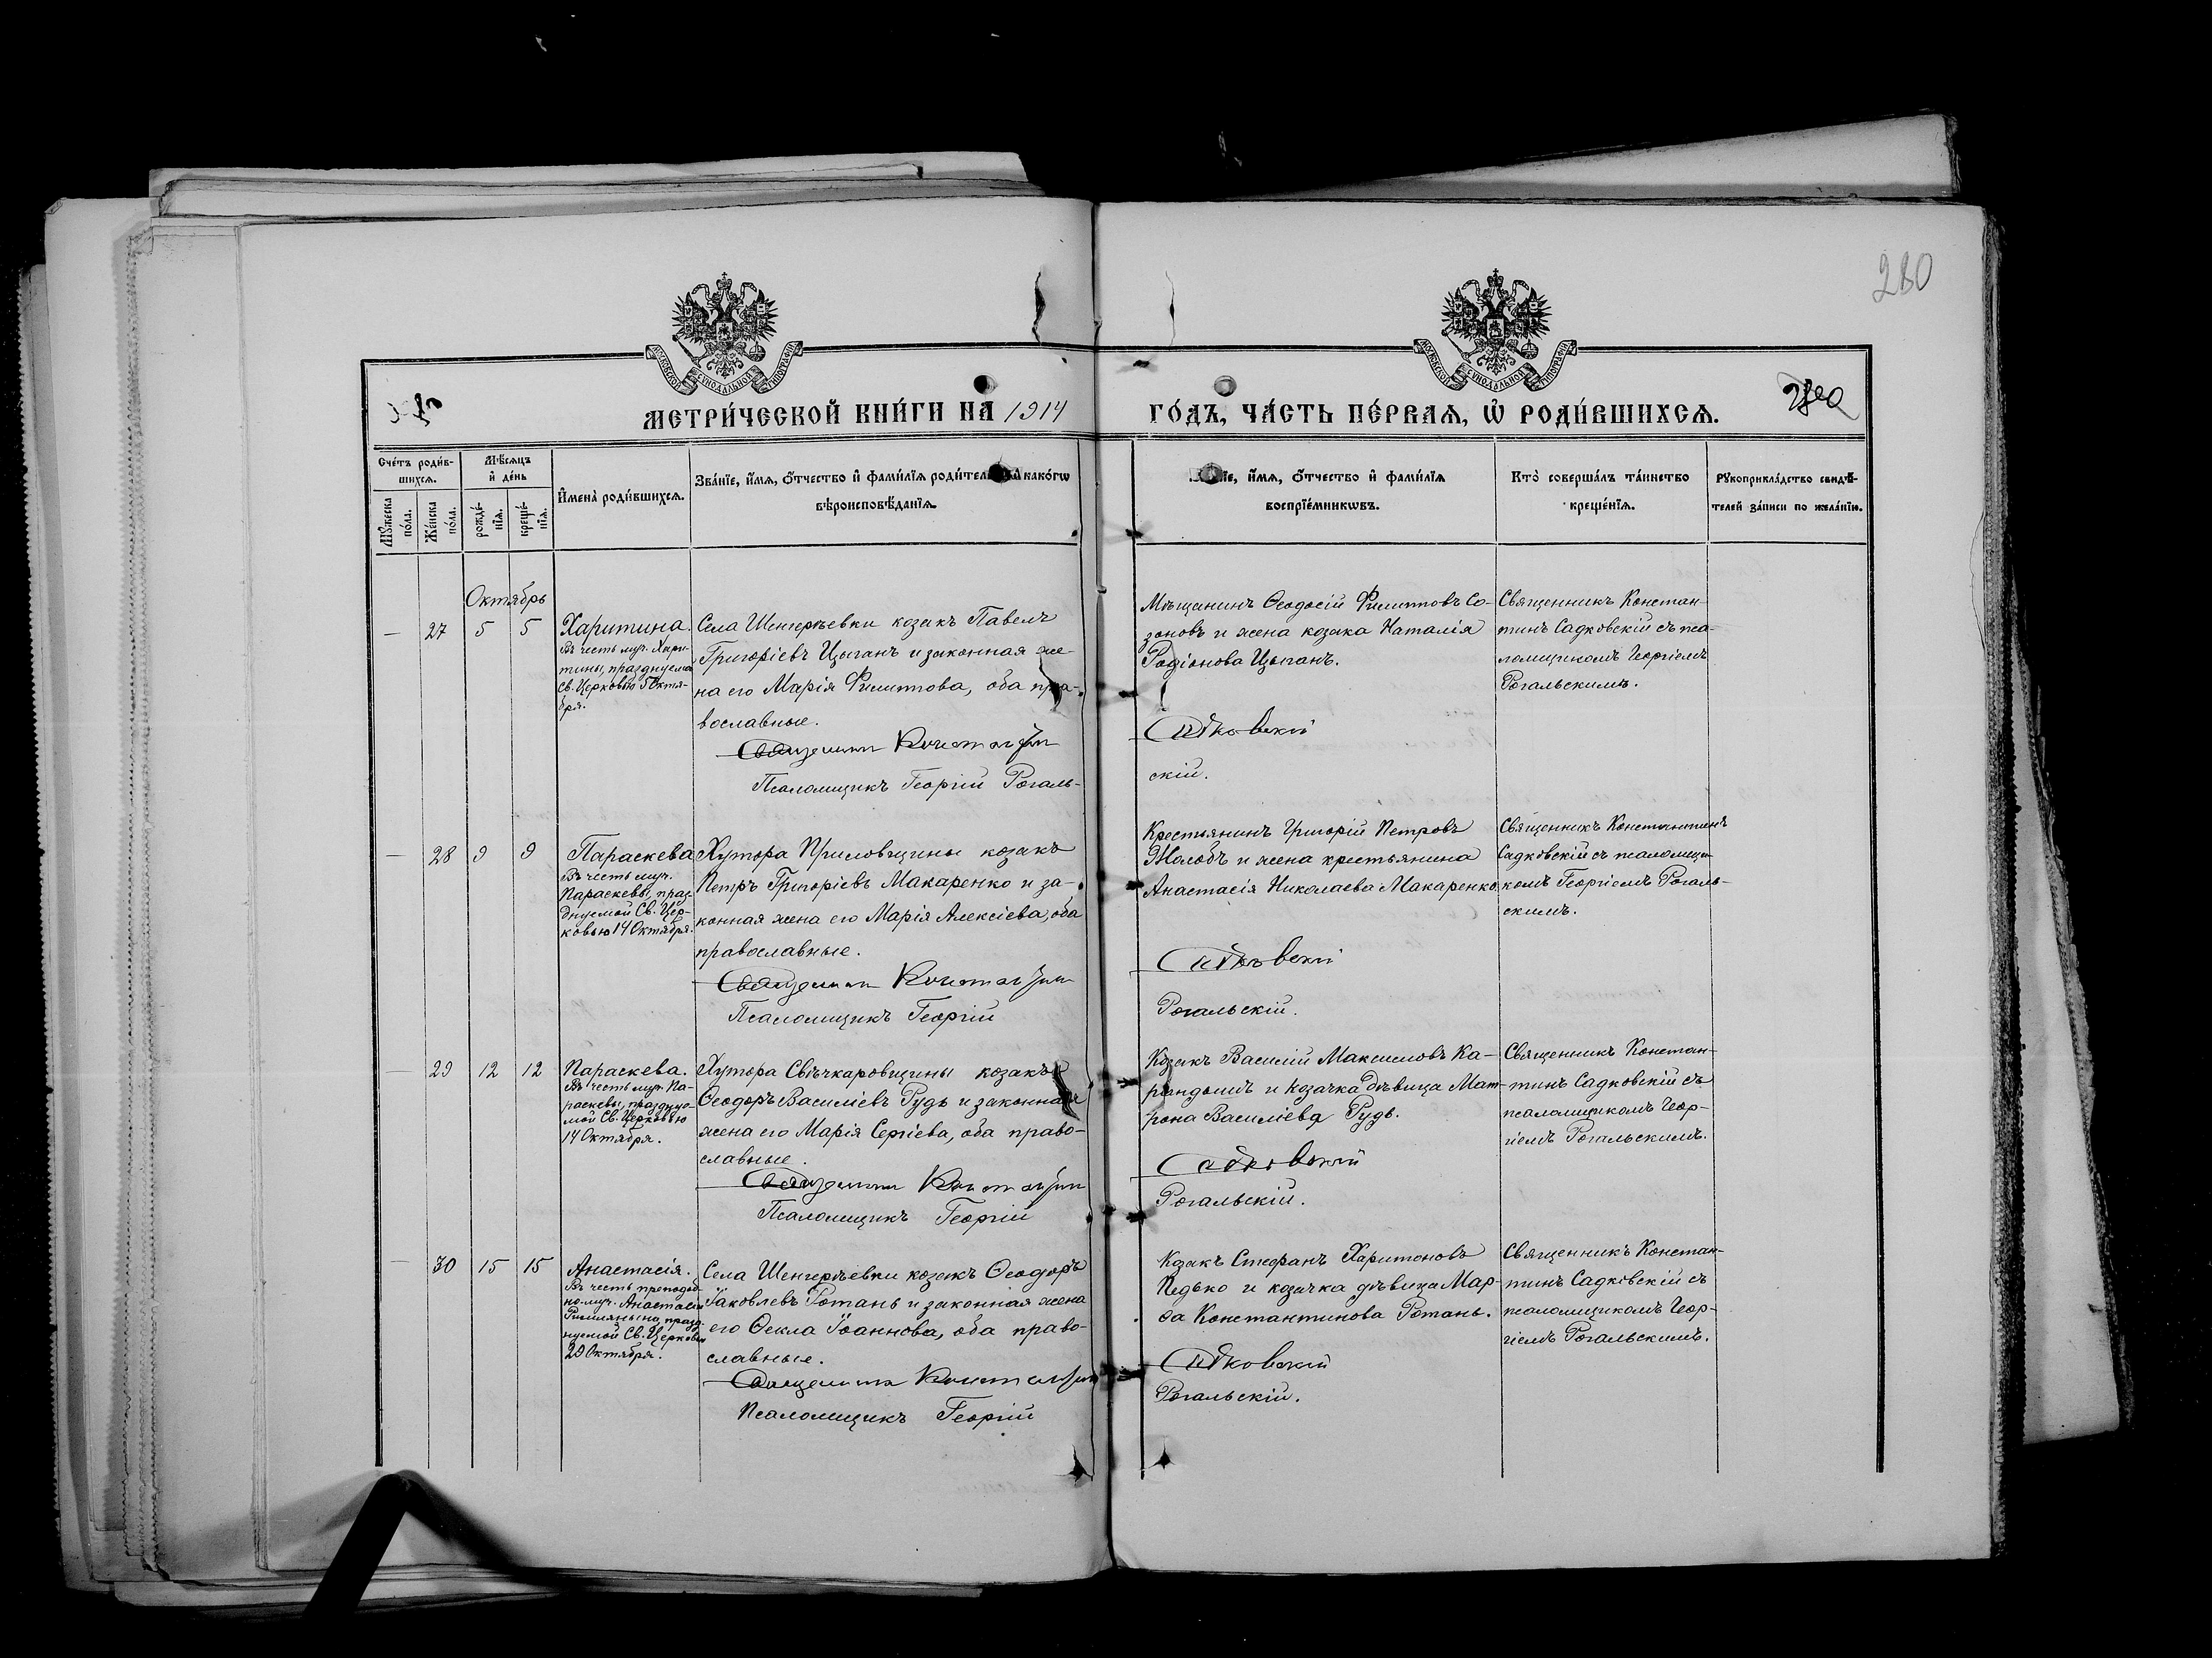 280
МЕТРИ́ЧЕСКОЙ КНИ́ГИ НА 1914
ГО́ДЪ, ЧА́СТЬ ПЕ́РВАЯ, Ѡ҆ РОДИ́ВШИХСѦ.
Сче́тъ роди́в-
шихсѧ.
Мꙋ́жеска по́ла.
Же́нска по́ла.
Мѣ́сѧцъ
и҆ де́нь
рожде́-
нїѧ.
креще́-
нїѧ.
И҆мена̀ роди́вшихсѧ.
Зва́нїе, и҆́мѧ, ѻ҆́тчество и҆ фами́лїѧ роди́тел како́гѡ
вѣроисповѣ́данїѧ.
и҆́мѧ, ѻ҆́тчество и҆ фами́лїѧ
воспрїе́мникѡвъ.
Кто̀ соверша́лъ та́инство
креще́нїѧ.
Рꙋкоприкла́дство свидѣ́-
телей за́писи по жела́нїю.
Октябрь
— 27 5 5
Харитина.
Въ честь муч. Хари-
тины, празднуемой
Св. Церковью 5 Октя-
бря.
Села Шенгерѣевки козакъ Павелъ
Григоріевъ Цыганъ и законная же-
на его Марія Филиппова, оба пра-
вославные.
Священникъ Константин
Псаломщикъ Георгій Рогаль-
Мѣщанинъ Ѳеодосій Филипповъ Со-
зоновъ и жена козака Наталія
Родіонова Цыганъ.
Садковскій
скій.
Священникъ Констан-
тинъ Садковскій съ пса-
ломщикомъ Георгіемъ
Рогальскимъ.
— 28 9 9
Параскева
Въ честь муч.
Параскевы, праз-
днуемой Св. Цер-
ковью 14 Октября.
Хутора Приловщины козакъ
Петръ Григоріевъ Макаренко и за-
конная жена его Марія Алексіева, оба
православные.
Священникъ Константин
Псаломщикъ Георгій
Крестьянинъ Григорій Петровъ
Молодъ и жена крестьянина
Анастасія Николаева Макаренко
Садковскій
Рогальскій.
Священникъ Константинъ
Садковскій съ псаломщи-
комъ Георгіемъ Рогаль-
скимъ.
— 29 12 12
Параскева.
Въ честь муч. Па-
раскевы, празднуе-
мой Св. Церковью
14 Октября.
Хутора Свѣчкаровщины козакъ
Ѳеодоръ Василіевъ Рудь и законная
жена его Марія Сергіева, оба право-
славные.
Священникъ Константин
Псаломщикъ Георгій
Козакъ Василій Максимовъ Ка-
рандашъ и козачка дѣвица Мат-
рона Василіева Рудь.
Садковскій
Рогальскій.
Священникъ Констан-
тинъ Садковскій съ
псаломщикомъ Геор-
гіемъ Рогальскимъ.
— 30 15 15
Анастасія.
Въ честь преподоб-
номуч. Анастасіи
Римляныни, празд-
нуемой Св. Церковью
29 Октября.
Села Шенгерѣевки козакъ Ѳеодоръ
Іаковлевъ Ротань и законная жена
его Ѳекла Іоаннова, оба право-
славные.
Священникъ Константин
Псаломщикъ Георгій
Козакъ Стефанъ Харитоновъ
Педько и козачка дѣвица Мар-
ѳа Константинова Ротань.
Садковскій
Рогальскій.
Священникъ Констан-
тинъ Садковскій съ
псаломщикомъ Геор-
гіемъ Рогальскимъ.